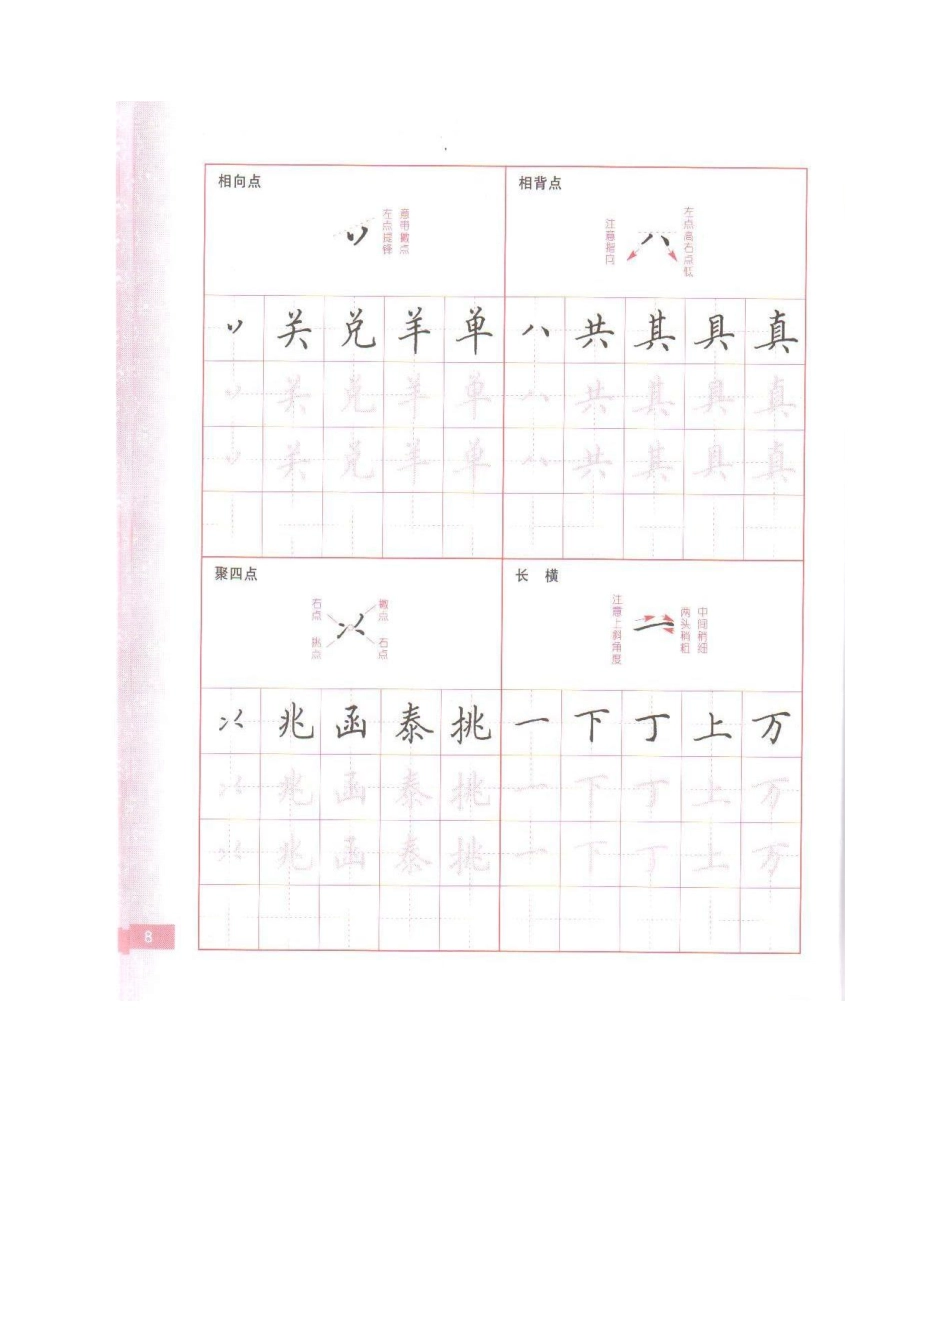 相向点
左点提锋
意带撇点
丷 关 兑 羊 单
丷 关 兑 羊 单
丷 关 兑 羊 单
相背点
注意指向
左点高右点低
八 共 其 具 真
八 共 其 具 真
八 共 其 具 真
聚四点
右点
撇点
挑点
右点
兆 函 泰 挑
兆 函 泰 挑
兆 函 泰 挑
长 横
注意上斜角度
两头稍粗
中间稍细
一 下 丁 上 万
一 下 丁 上 万
一 下 丁 上 万
8